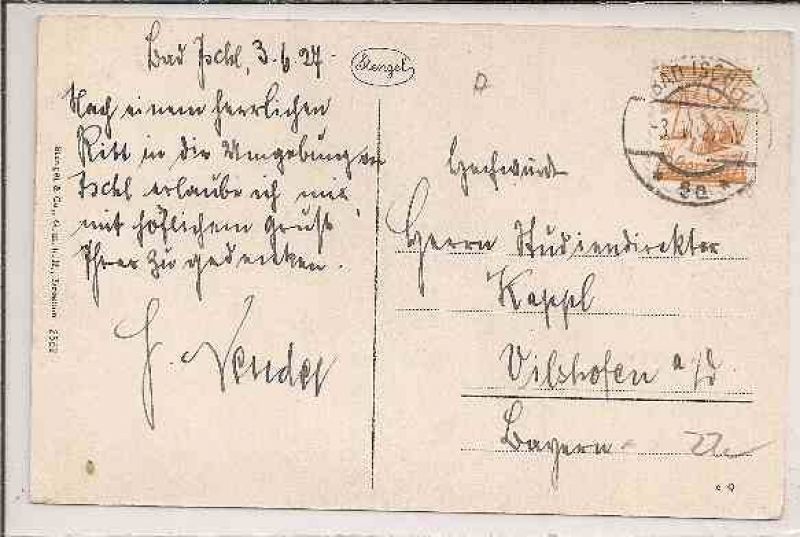 Bad Ischl, 3.6.27.
Nach einem herrlichen
Ritt in die Umgebung von
Ischl erlaube ich mir
mit höflichem Gruß
Ihrer zu gedenken.
Stengel
Stengel & Co., G. m. b. H., Dresden
BAD ISCHL
8a
Hochwürd
Herrn Studiendirektor
Kappl
Vilshofen a/d
Bayern